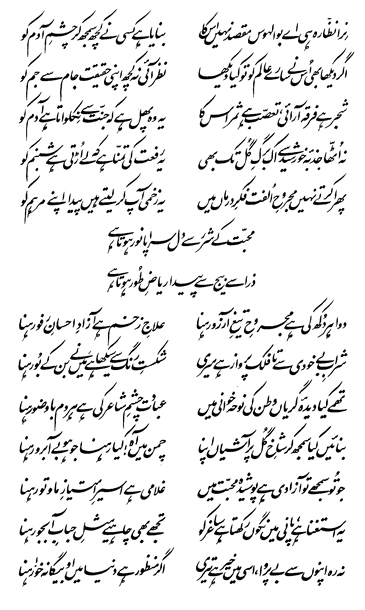 نرا نظّارہ ہی اے بوالہوس مقصد نہیں اس کا بنایا ہے کسی نے کچھ سمجھ کر چشمِ آدم کو
اگر دیکھا بھی اُس نے سارے عالم کو تو کیا دیکھا نظر آئی نہ کچھ اپنی حقیقت جام سے جم کو
شجر ہے فرقہ آرائی، تعصّب ہے ثمر اس کا یہ وہ پھل ہے کہ جنت سے نکلواتا ہے آدم کو
نہ اُٹھا جذبۂ خورشید سے اک برگِ گُل تک بھی یہ رفعت کی تمنّا ہے کہ لے اُڑتی ہے شبنم کو
پھرا کرتے نہیں مجروحِ اُلفت فکرِ درماں میں یہ زخمی آپ کر لیتے ہیں پیدا اپنے مرہم کو
محبّت کے شرر سے دل سراپا نور ہوتا ہے
ذرا سے بیج سے پیدا ریاضِ طُور ہوتا ہے
دوا ہر دُکھ کی ہے مجروحِ تیغِ آرزو رہنا علاجِ زخم ہے آزادِ احسانِ رفو رہنا
شرابِ بے خودی سے تا فلک پرواز ہے میری شکستِ رنگ سے سیکھا ہے میں نے بن کے بُو رہنا
تھمے کیا دیدۂ گریاں وطن کی نوحہ خوانی میں عبادت چشمِ شاعر کی ہے ہر دم با وضو رہنا
بنائیں کیا سمجھ کر شاخِ گُل پر آشیاں اپنا چمن میں آہ! کیا رہنا جو ہو بے آبرو رہنا
جو تُو سمجھے تو آزادی ہے پوشیدہ محبت میں غلامی ہے اسیرِ امتیازِ ما و تُو رہنا
یہ استغنا ہے، پانی میں نگوں رکھتا ہے ساغر کو تجھے بھی چاہیے مثلِ حبابِ آبجو رہنا
نہ رہ اپنوں سے بے پروا، اسی میں خیر ہے تیری اگر منظور ہے دنیا میں او بیگانہ خو! رہنا